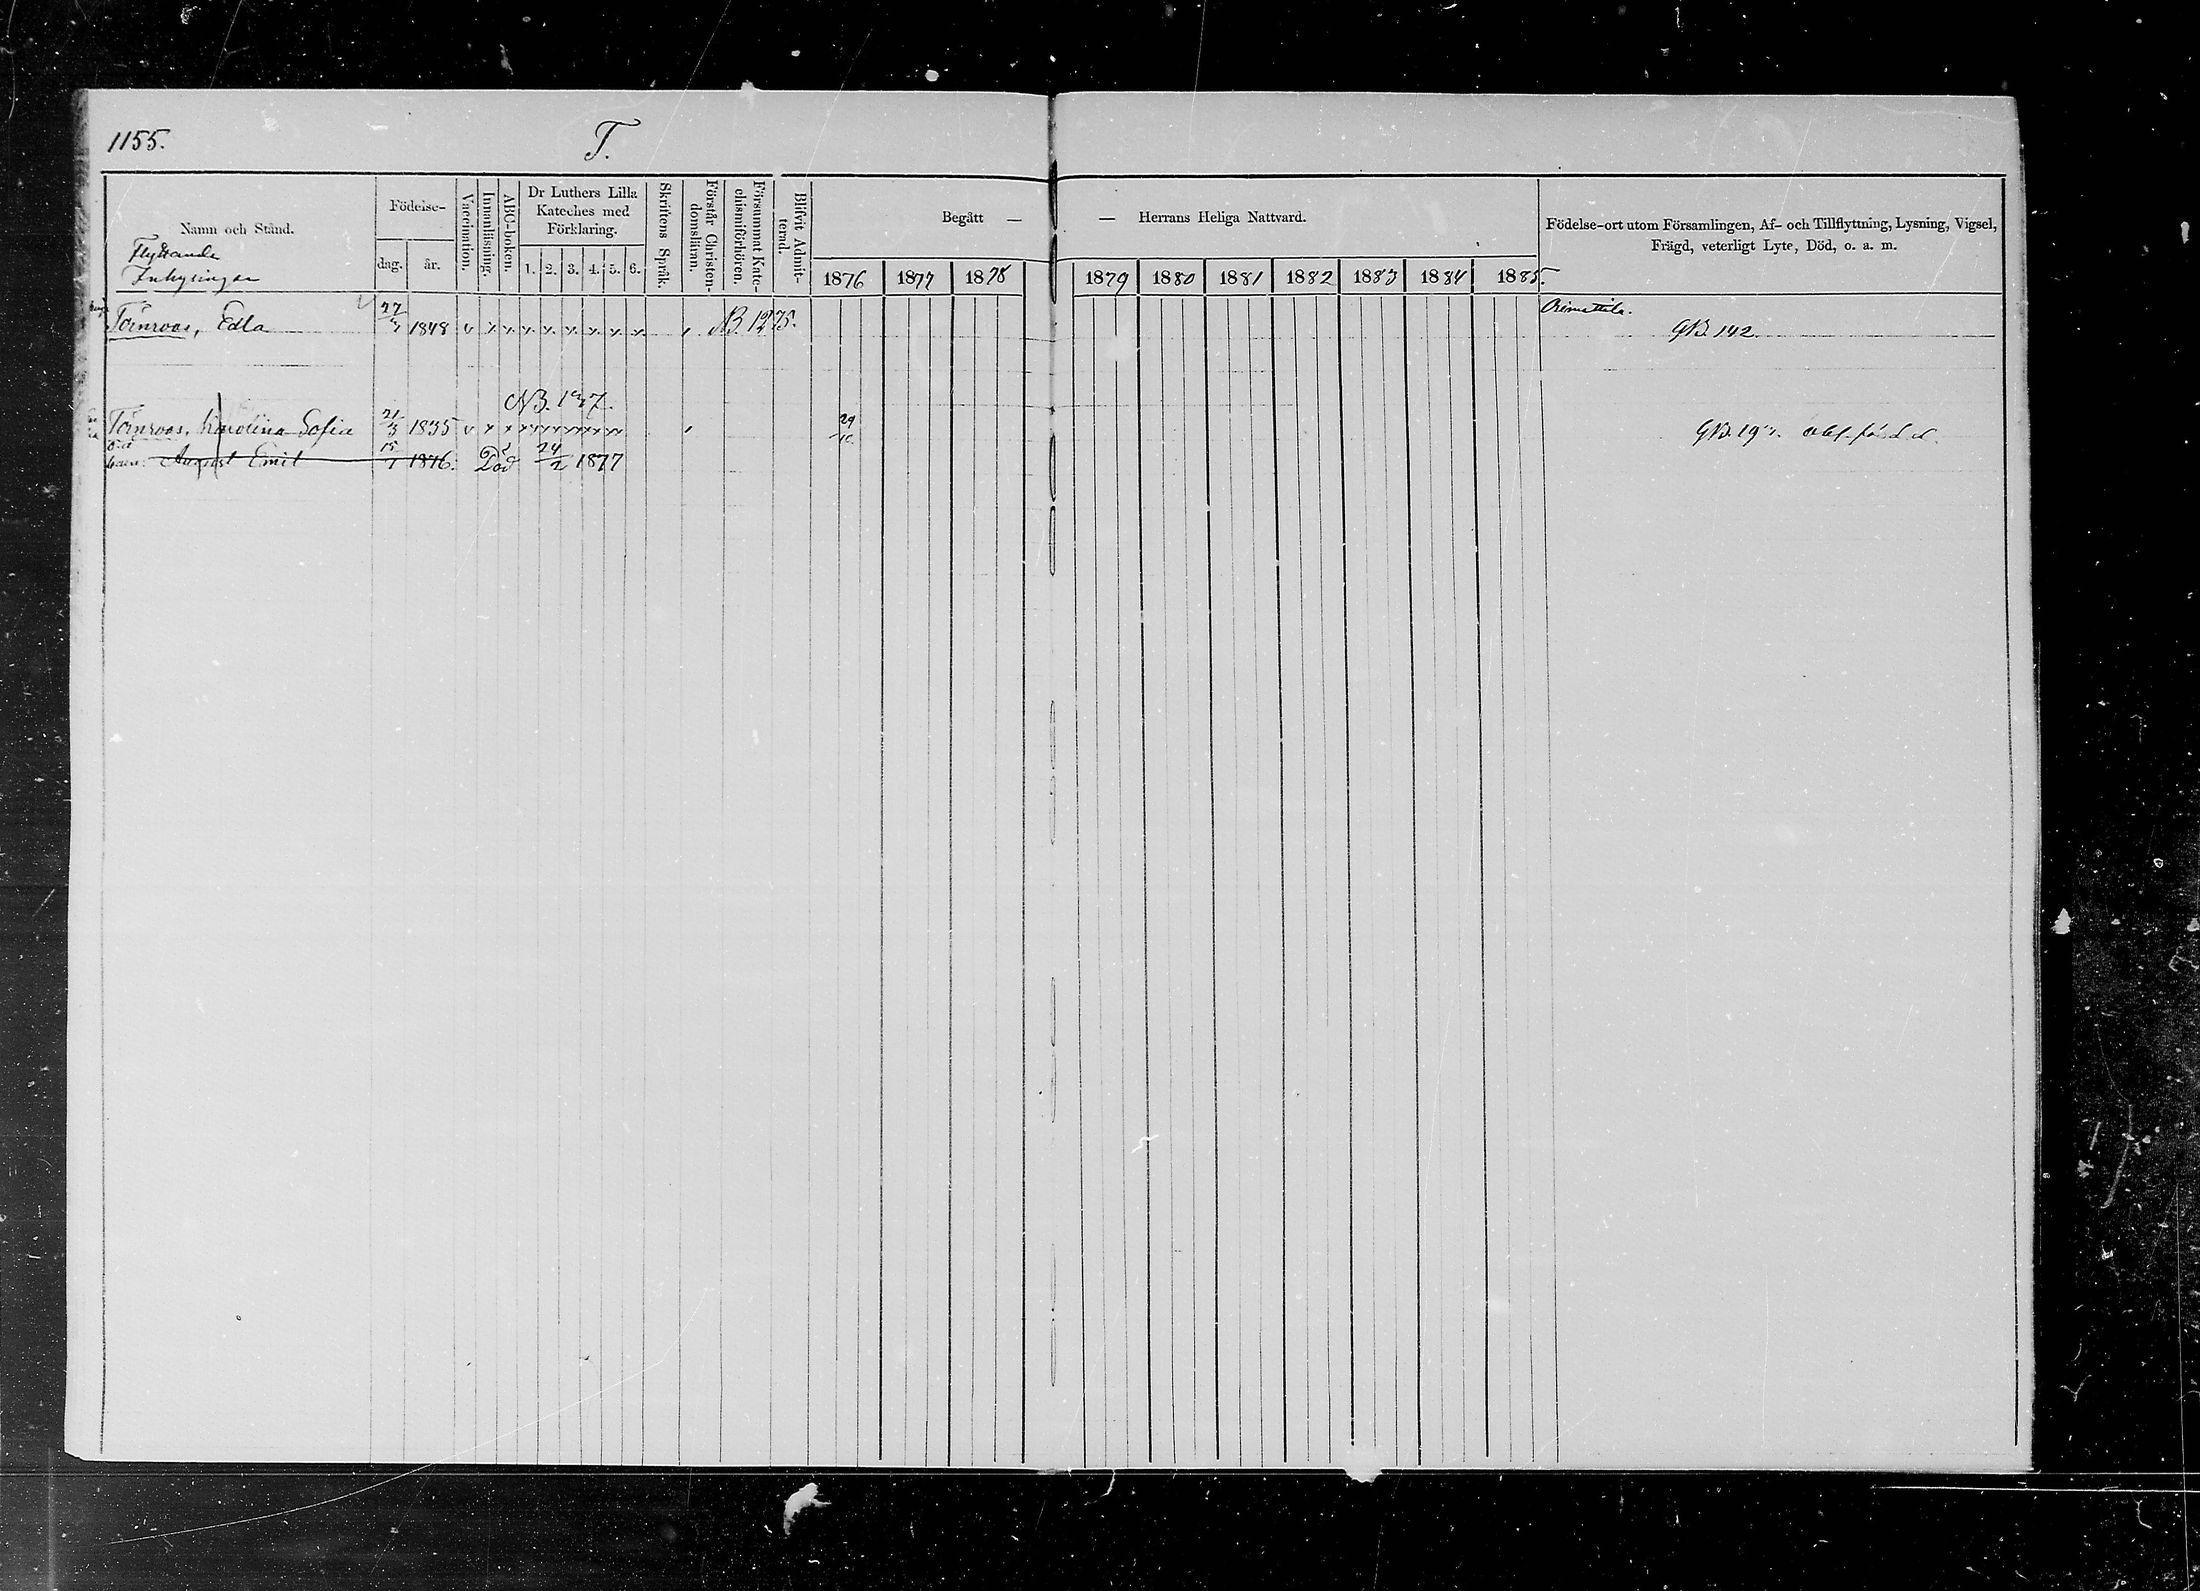 1155.
T.
Namn och Stånd.
Flyttande
Inhysingar
Födelse-
dag.
år.
Vaccination.
Innanläsning.
ABC-boken.
Dr Luthers Lilla
Kateches med
Förklaring.
1. 2. 3. 4. 5. 6.
Skriftens Språk.
Förstår Christen-
domsläran.
Försummat Kate-
chismiförhören.
Blifvit Admit-
terad.
Begått —
— Herrans Heliga Nattvard.
1876 1877 1878 1879 1880 1881 1882 1883 1884 1885.
Födelse-ort utom Församlingen, Af- och Tillflyttning, Lysning, Vigsel,
Frägd, veterligt Lyte, Död, o. a. m.
Orimattila.
Törnroos, Edla 27/7 1848 v x x x x x x x x NB. 1275. GB. 142.
NB.
Törnroos, Karolina Sofia 21/3 1835 v x x x x x x x x 29/10 GB.
August Emil 15/7 1876. Död 24/2 1877